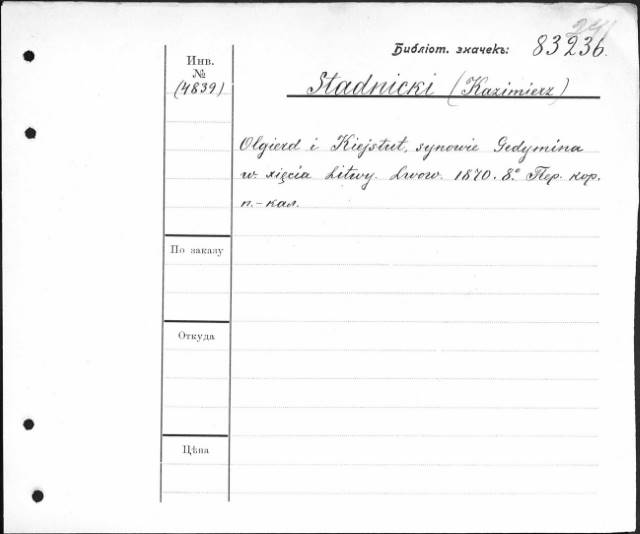 Библіот. значекъ: 83236.
Инв.
№
(4839)
Stadnicki (Kazimierz)
Olgierd i Kiejstut, synowie Gedymina
w. xięcia Litwy. Lwow. 1870. 8.° Пер. кор.
п.-кал.
По заказу
Откуда
Цѣна